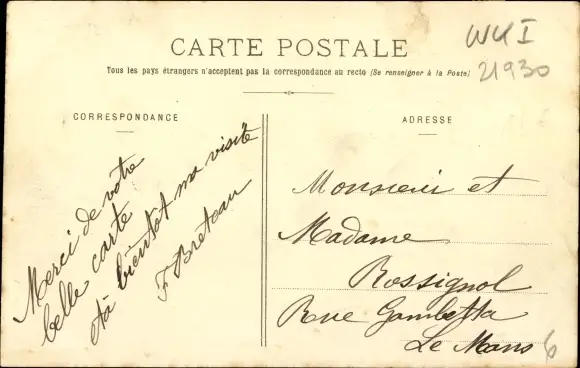 CARTE POSTALE
WKI
21930
Tous les pays étrangers n'acceptent pas la correspondance au recto (Se renseigner à la Poste)
CORRESPONDANCE
Merci de votre
belle carte
et à bientôt ma visite
F Breteau
ADRESSE
Monsieur et
Madame
Rossignol
Rue Gambetta
Le Mans
6